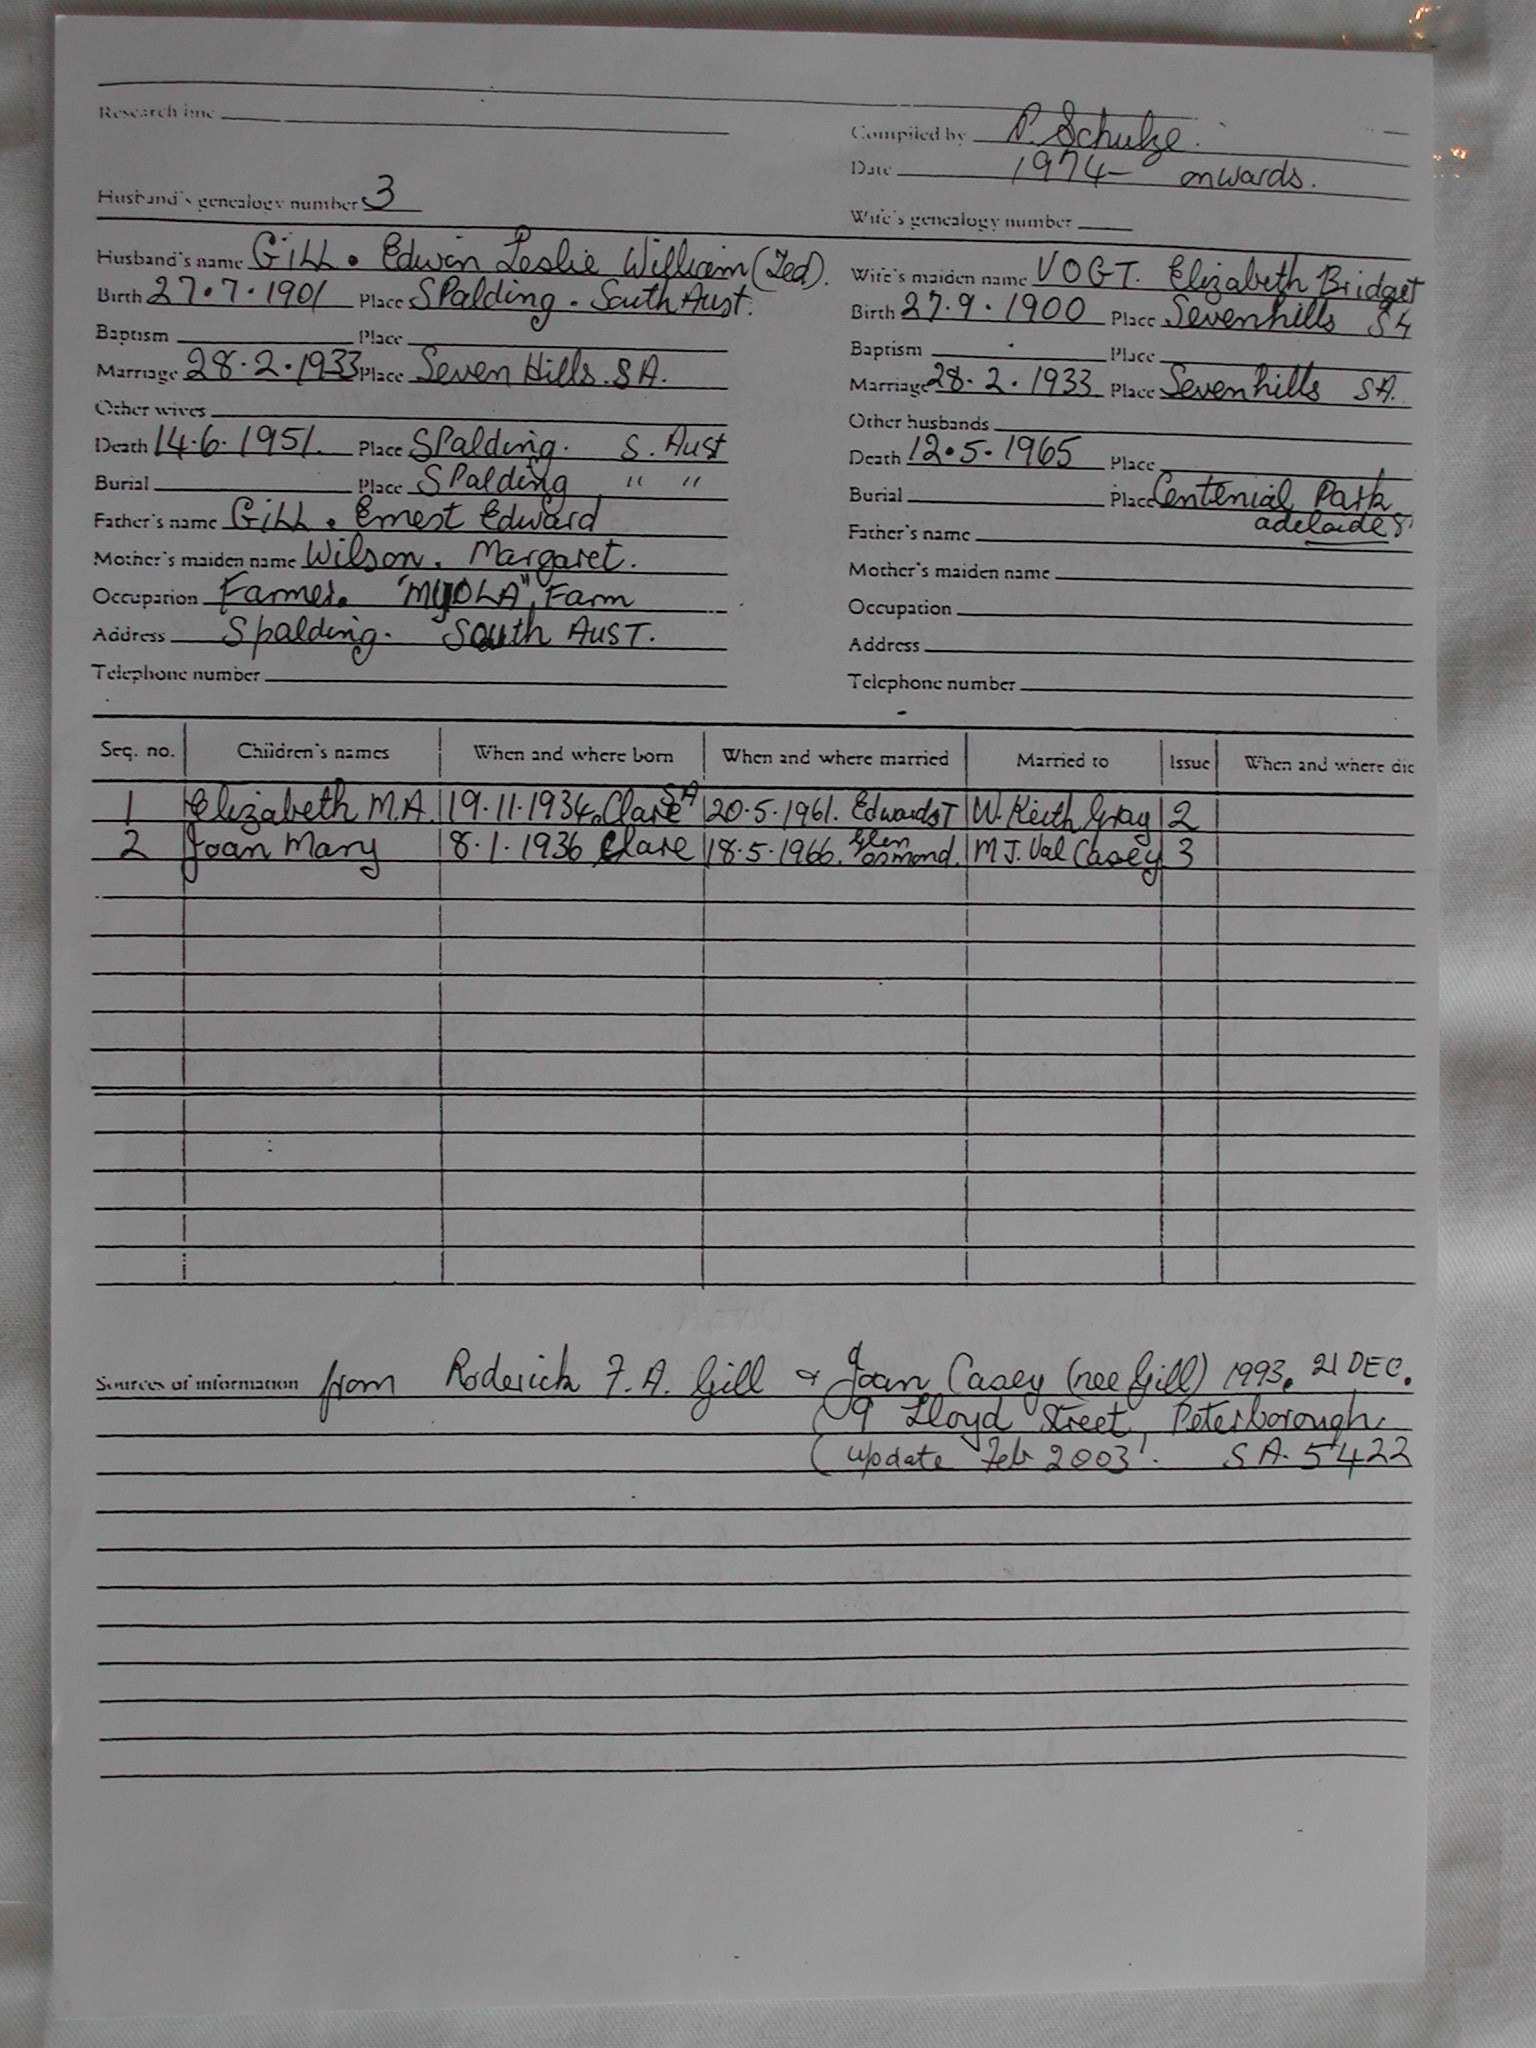 Research line
Compiled by P. Schulze.
Date 1974- onwards.
Husband's genealogy number 3
Wife's genealogy number
Husband's name GILL. Edwin Leslie William (Ted).
Birth 27.7.1901 Place Spalding. South Aust.
Baptism Place
Marriage 28.2.1933 Place Seven Hills. SA.
Other wives
Death 14.6.1951. Place Spalding. S. Aust
Burial Place Spalding " "
Father's name GILL. Ernest Edward
Mother's maiden name Wilson. Margaret.
Occupation Farmer. "MYOLA", Farm
Address Spalding. South AUST.
Telephone number
Wife's maiden name VOGT. Elizabeth Bridget
Birth 27.9.1900 Place Sevenhills SA
Baptism Place
Marriage 28.2.1933 Place Sevenhills SA.
Other husbands
Death 12.5.1965 Place
Burial Place Centenial Park
adelaide
Father's name
Mother's maiden name
Occupation
Address
Telephone number
Seq. no. Children's names When and where born When and where married Married to Issue When and where die
1 Elizabeth M.A. 19.11.1934. Clare SA 20.5.1961. Edwardst W. Keith Gray 2
2 Joan Mary 8.1.1936 Clare 18.5.1966. Glen osmond. M J. Val Casey 3
Sources of information from Roderick F. A. Gill & Joan Casey (nee Gill) 1993. 21 DEC.
(9 Lloyd Street, Peterborough.
(update Feb 2003. SA. 5422